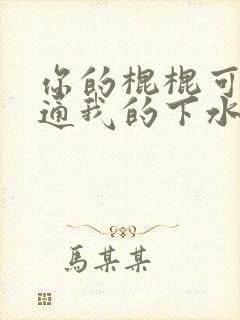 你的棍棍可
通我的下水
馬某某